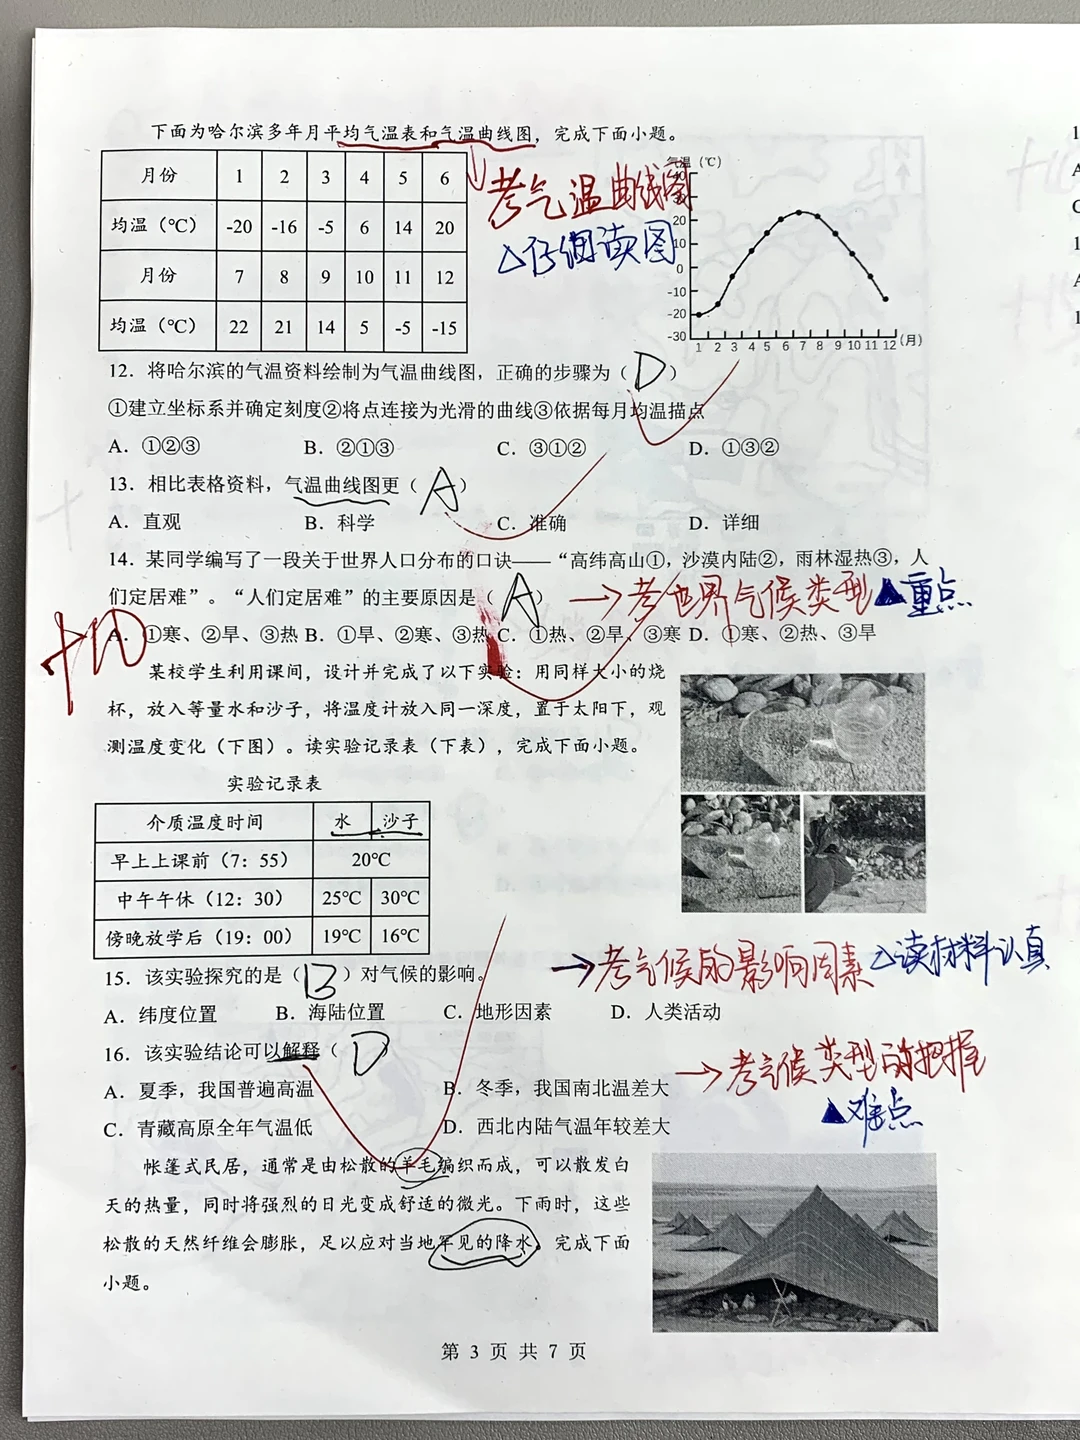 下面为哈尔滨多年月平均气温表和气温曲线图，完成下面小题。
月份 1 2 3 4 5 6
均温（℃） -20 -16 -5 6 14 20
月份 7 8 9 10 11 12
均温（℃） 22 21 14 5 -5 -15
考气温曲线图
△仔细读图
气温（℃）
20
10
0
-10
-20
-30
1 2 3 4 5 6 7 8 9 10 11 12 (月)
12．将哈尔滨的气温资料绘制为气温曲线图，正确的步骤为（ D ）
①建立坐标系并确定刻度②将点连接为光滑的曲线③依据每月均温描点
A．①②③ B．②①③ C．③①② D．①③②
13．相比表格资料，气温曲线图更（ A ）
A．直观 B．科学 C．准确 D．详细
14．某同学编写了一段关于世界人口分布的口诀——“高纬高山①，沙漠内陆②，雨林湿热③，人
们定居难”，“人们定居难”的主要原因是（ A ）
→考世界气候类型▲重点
A．①寒、②旱、③热 B．①旱、②寒、③热 C．①热、②旱、③寒 D．①寒、②热、③旱
+10
某校学生利用课间，设计并完成了以下实验：用同样大小的烧
杯，放入等量水和沙子，将温度计放入同一深度，置于太阳下，观
测温度变化（下图）。读实验记录表（下表），完成下面小题。
实验记录表
介质温度时间 水 沙子
早上上课前（7：55） 20℃
中午午休（12：30） 25℃ 30℃
傍晚放学后（19：00） 19℃ 16℃
→考气候的影响因素△读材料认真
15．该实验探究的是（ B ）对气候的影响。
A．纬度位置 B．海陆位置 C．地形因素 D．人类活动
16．该实验结论可以解释（ D ）
→考气候类型的把握
▲难点
A．夏季，我国普遍高温 B．冬季，我国南北温差大
C．青藏高原全年气温低 D．西北内陆气温年较差大
帐篷式民居，通常是由松散的羊毛编织而成，可以散发白
天的热量，同时将强烈的日光变成舒适的微光。下雨时，这些
松散的天然纤维会膨胀，足以应对当地罕见的降水。完成下面
小题。
第 3 页 共 7 页